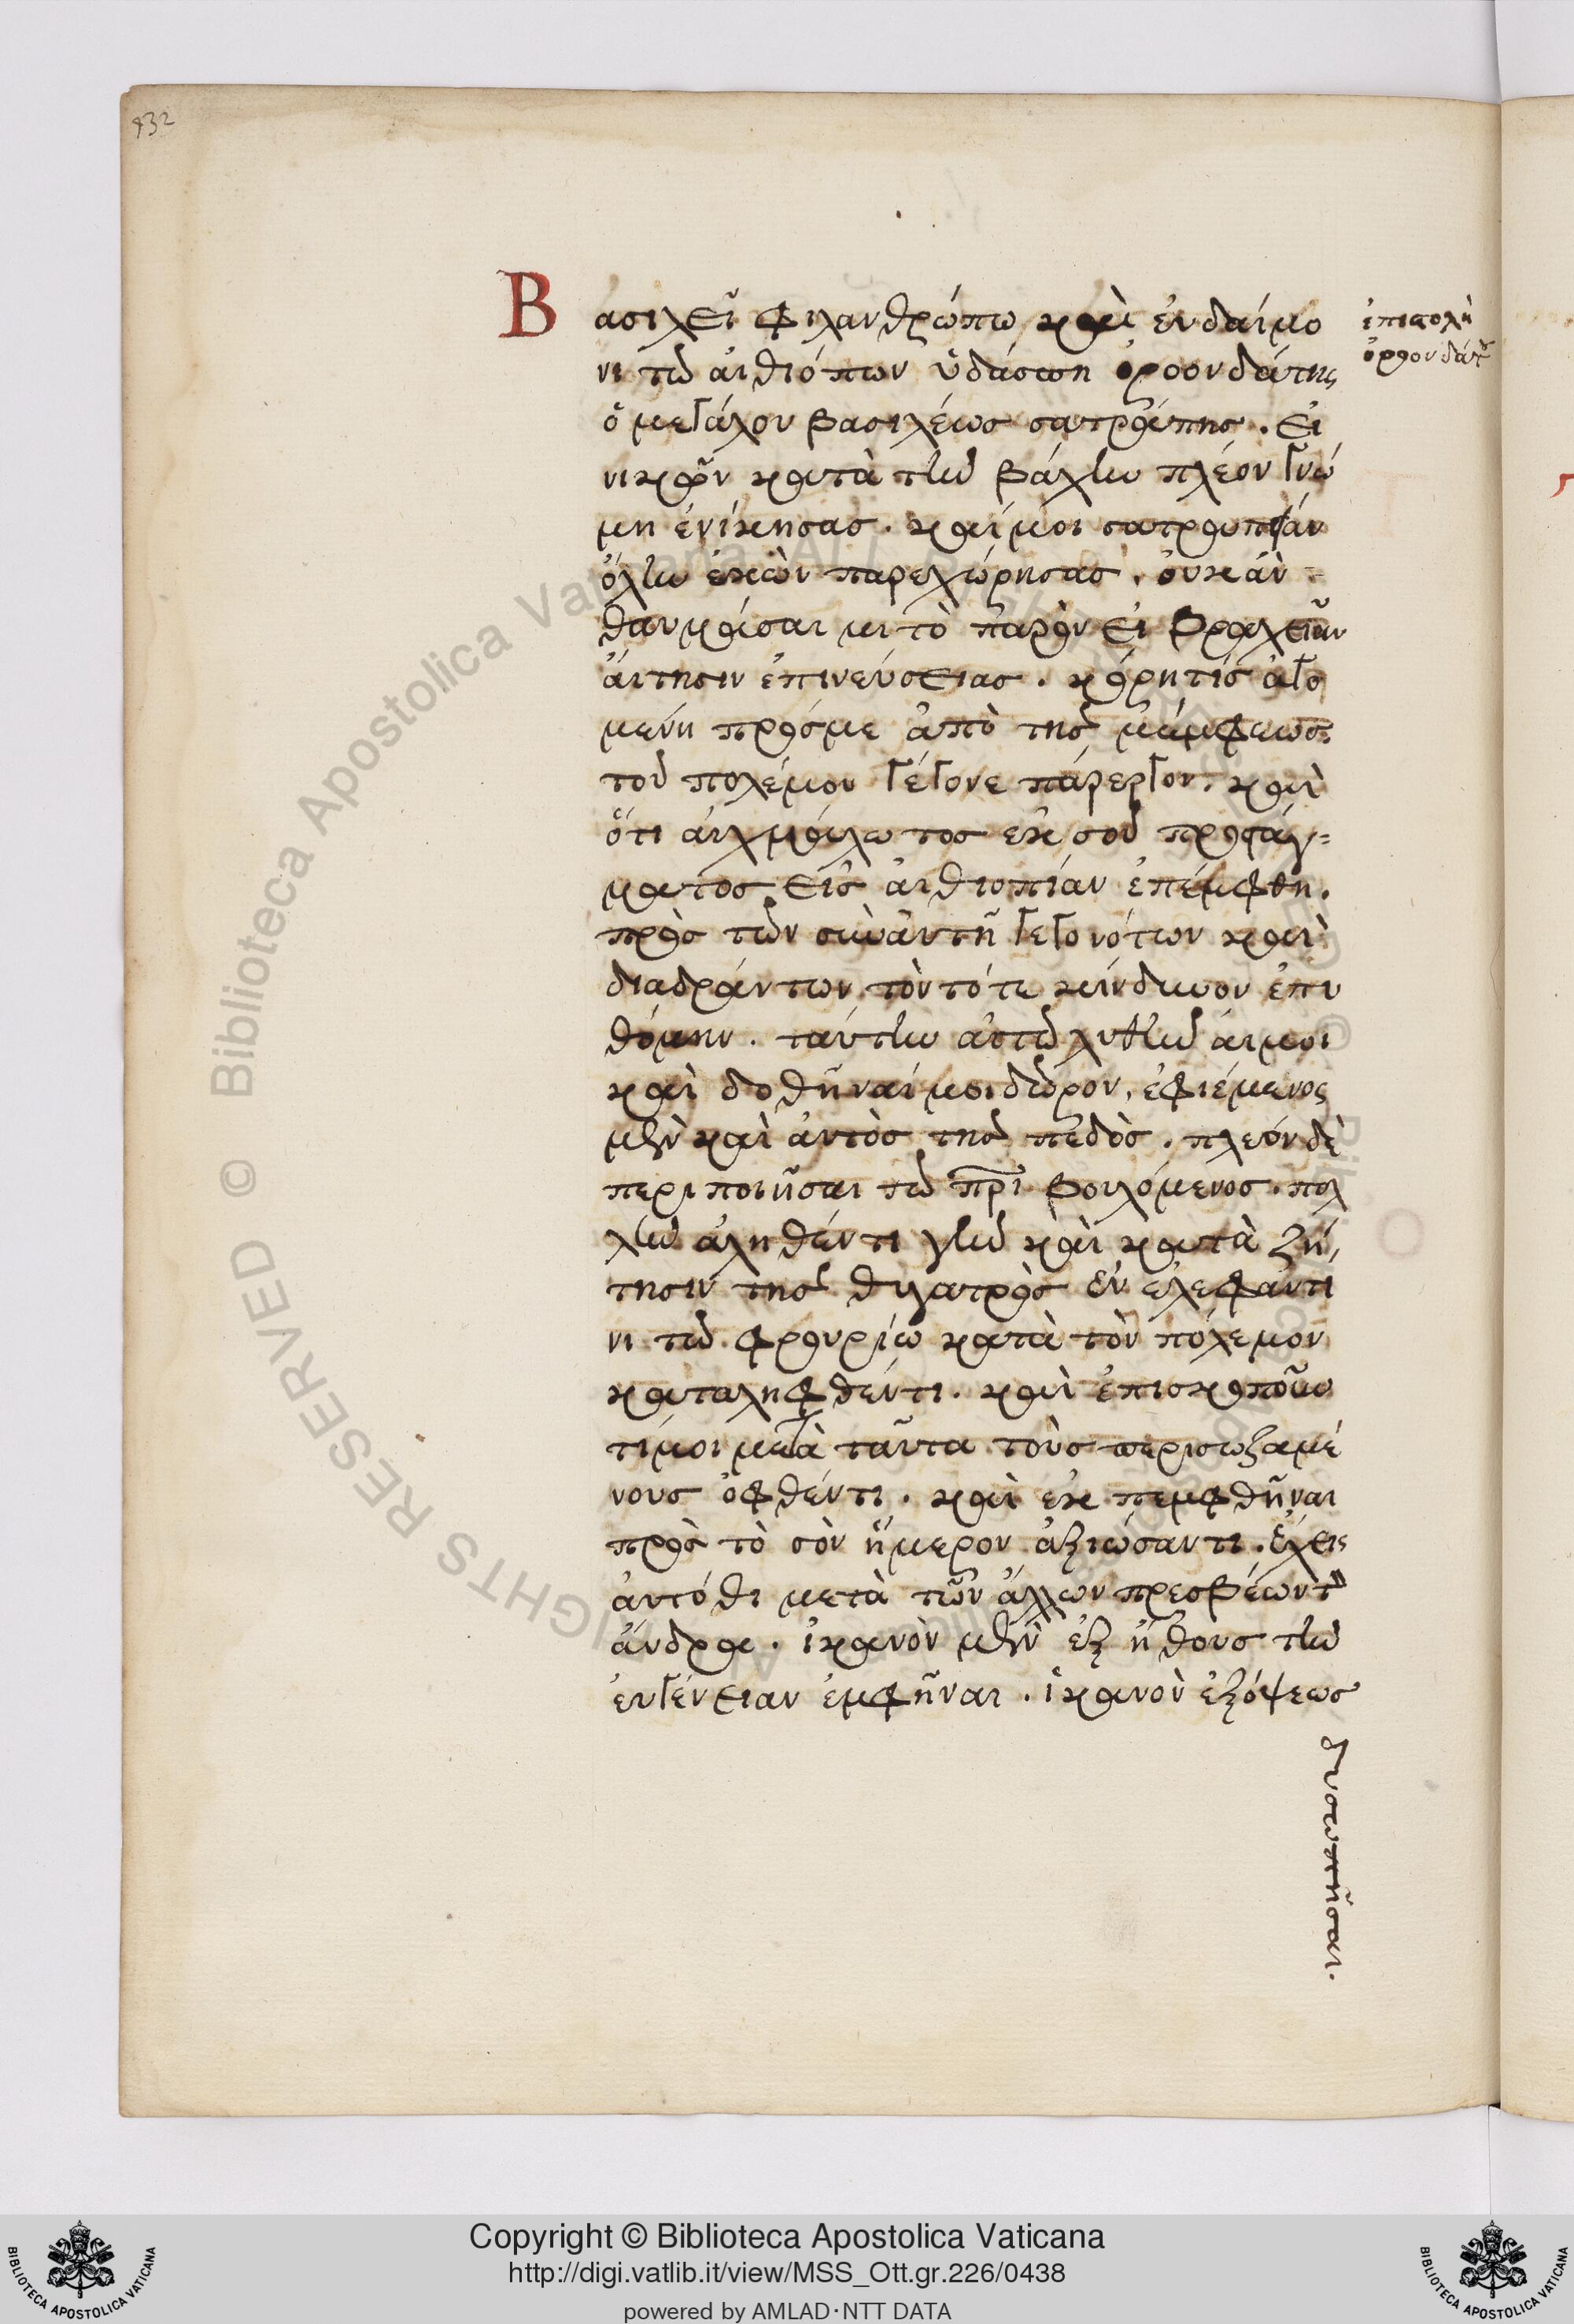 432
Βασιλεῖ φιλανθρώπω καὶ ἐυδαίμο
νι τῶ ἀιθιόπων ὑδάσπη ὀροονδάτης
ὁ μεγάλου βασιλέως σατράπης. Εἰ
νικῶν κατὰ τὴν βάχην πλέον γνώ
μη ἐνίκησας. καί μοι σατραπείαν
ὅλην ἑκὼν παρεχώρησας. ὀυκ ἂν
θαυμάσαιμι τὸ παρὸν εἰ βραχεῖαν
ἄιτησιν ἐπινεύσειας. κόρη τίς ἀγο
μένη πρός με ἀπὸ τῆς μέμφεως.
τοῦ πολέμου γέγονε πάρεργον. καὶ
ὅτι ἀιχμάλωτος ἐκ σοῦ προστάγ=
ματος εἰς ἀιθιοπίαν ἐπέμφθη.
πρὸς τῶν σὺν ἀυτῆ γεγονότων καὶ
διαδράντων τὸν τότε κίνδυνον ἐπυ
θόμην. ταύτην ἀιτῶ λυθῆναί μοι
καὶ δοθῆναί μοι δῶρον, ἐφιέμενος
μὲν καὶ ἀυτὸς τῆς πεδὸς. πλεόν δὲ
περιποιῆσαι τῶ πρι βουλόμενος. πολ
λὴν ἀληθέντι γῆν καὶ κατὰ ζή,
τησιν τῆς θυγατρὸς ἐν ἐλεφαντί
νι τῶ φρουρίω κατὰ τὸν πόλεμον
καταληφθέντι. καὶ ἐπισκοποῦν
τί μοι μετὰ ταῦτα τοὺς περισωζαμέ
νους ὀφθέντι. καὶ ἐκ πεμφθῆναι
πρὸς τὸ σὸν ἥμερον ἀξιώσαντι. ἔχεις
ἀυτόθι μετὰ τῶν ἄλλων πρεσβέων τὸν
ἄνδρα. ἱκανὸν μὲν ἐξ ἤθους τὴν
ἐυγένειαν ἐμφῆναι. ἱκανὸν ἐξόψεως
δυσωπῆσαι.
ἐπιστολὴ
ὀροονδάτου
Copyright © Biblioteca Apostolica Vaticana
http://digi.vatlib.it/view/MSS_Ott.gr.226/0438
powered by AMLAD·NTT DATA